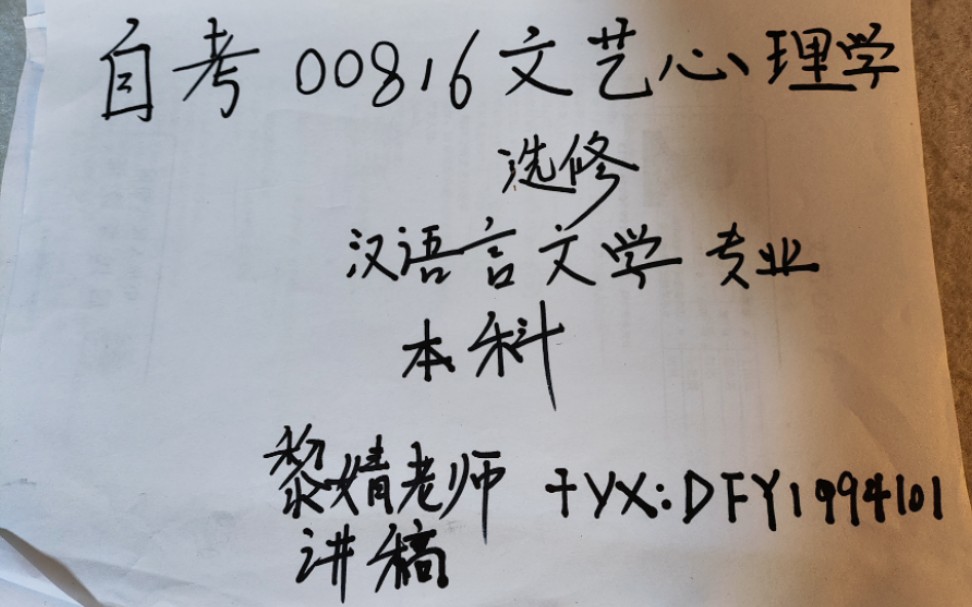 自考 00816 文艺心理学
选修
汉语言文学 专业
本科
黎婧老师 +YX:DFY1994101
讲稿